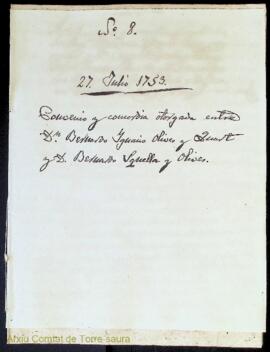 Nº 8.
27. Julio 1753.
Convenio y concordia otorgada entre
Dn Bernardo Ignacio Olives y Quart
y D. Bernardo Squella y Olives.
Arxiu Comtat de Torre-saura